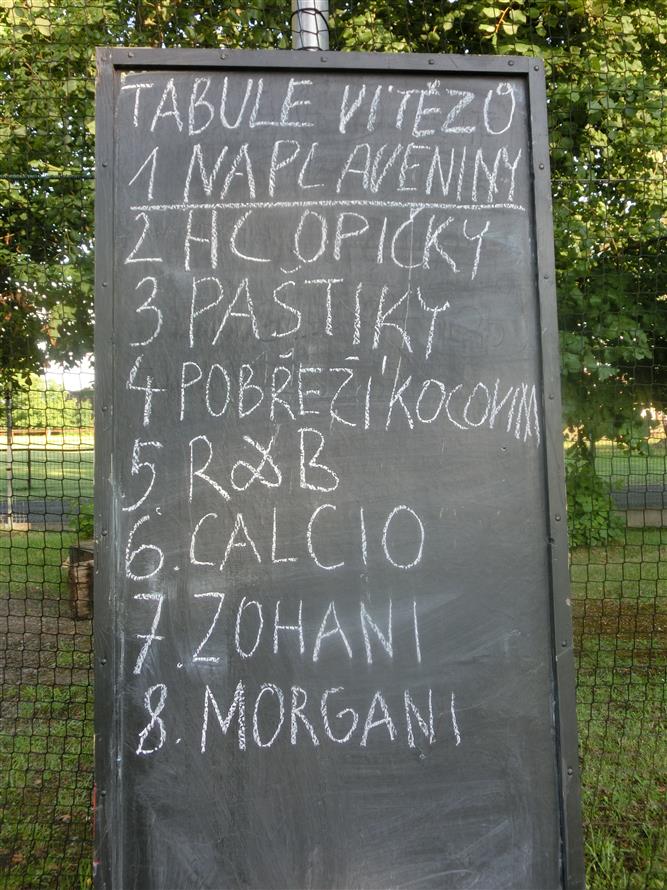 TABULE VÍTĚZŮ
1 NAPLAVENINY
2 HC OPIČKY
3 PAŠTIKY
4 POBŘEŽÍ KOCOVIN
5 R&B
6. CALCIO
7. ZOHANI
8. MORGANI